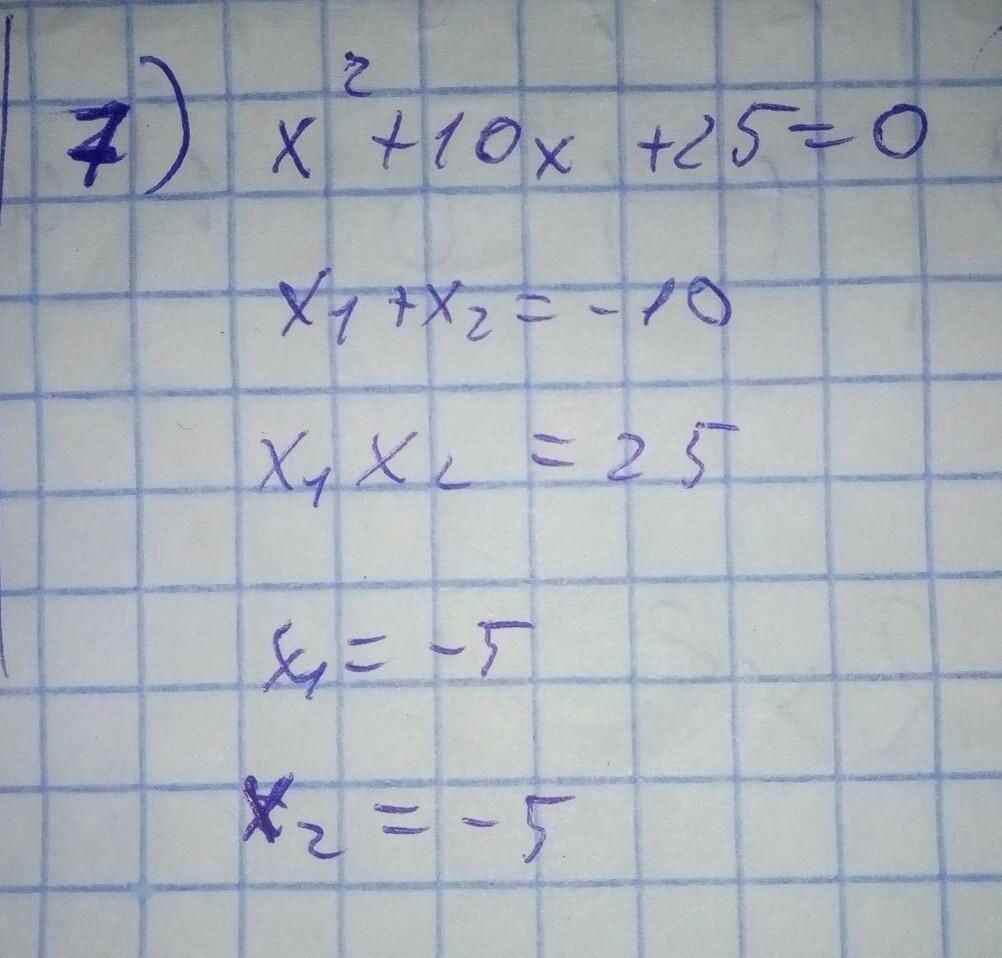 7) x² + 10x + 25 = 0
x₁ + x₂ = -10
x₁ x₂ = 25
x₁ = -5
x₂ = -5